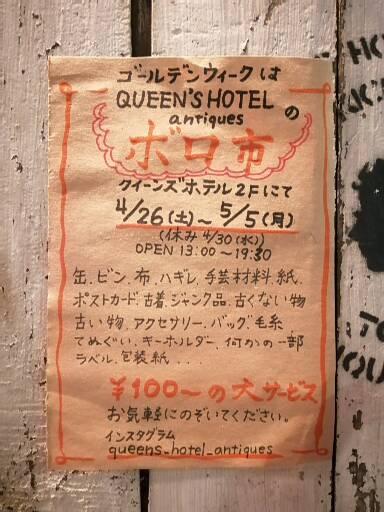 ゴールデンウィークは
QUEEN'S HOTEL の
antiques
ボロ市
クイーンズホテル2Fにて
4/26(土)～5/5(月)
(休み4/30(水))
OPEN 13:00～19:30
缶.ビン.布.ハギレ.手芸材料.紙.
ポストカード.古着.ジャンク品.古くない物
古い物.アクセサリー.バッグ.毛糸.
てぬぐい.キーホルダー.何かの一部
ラベル.包装紙...
¥100～の大サービス
お気軽にのぞいてください。
インスタグラム
queens_hotel_antiques